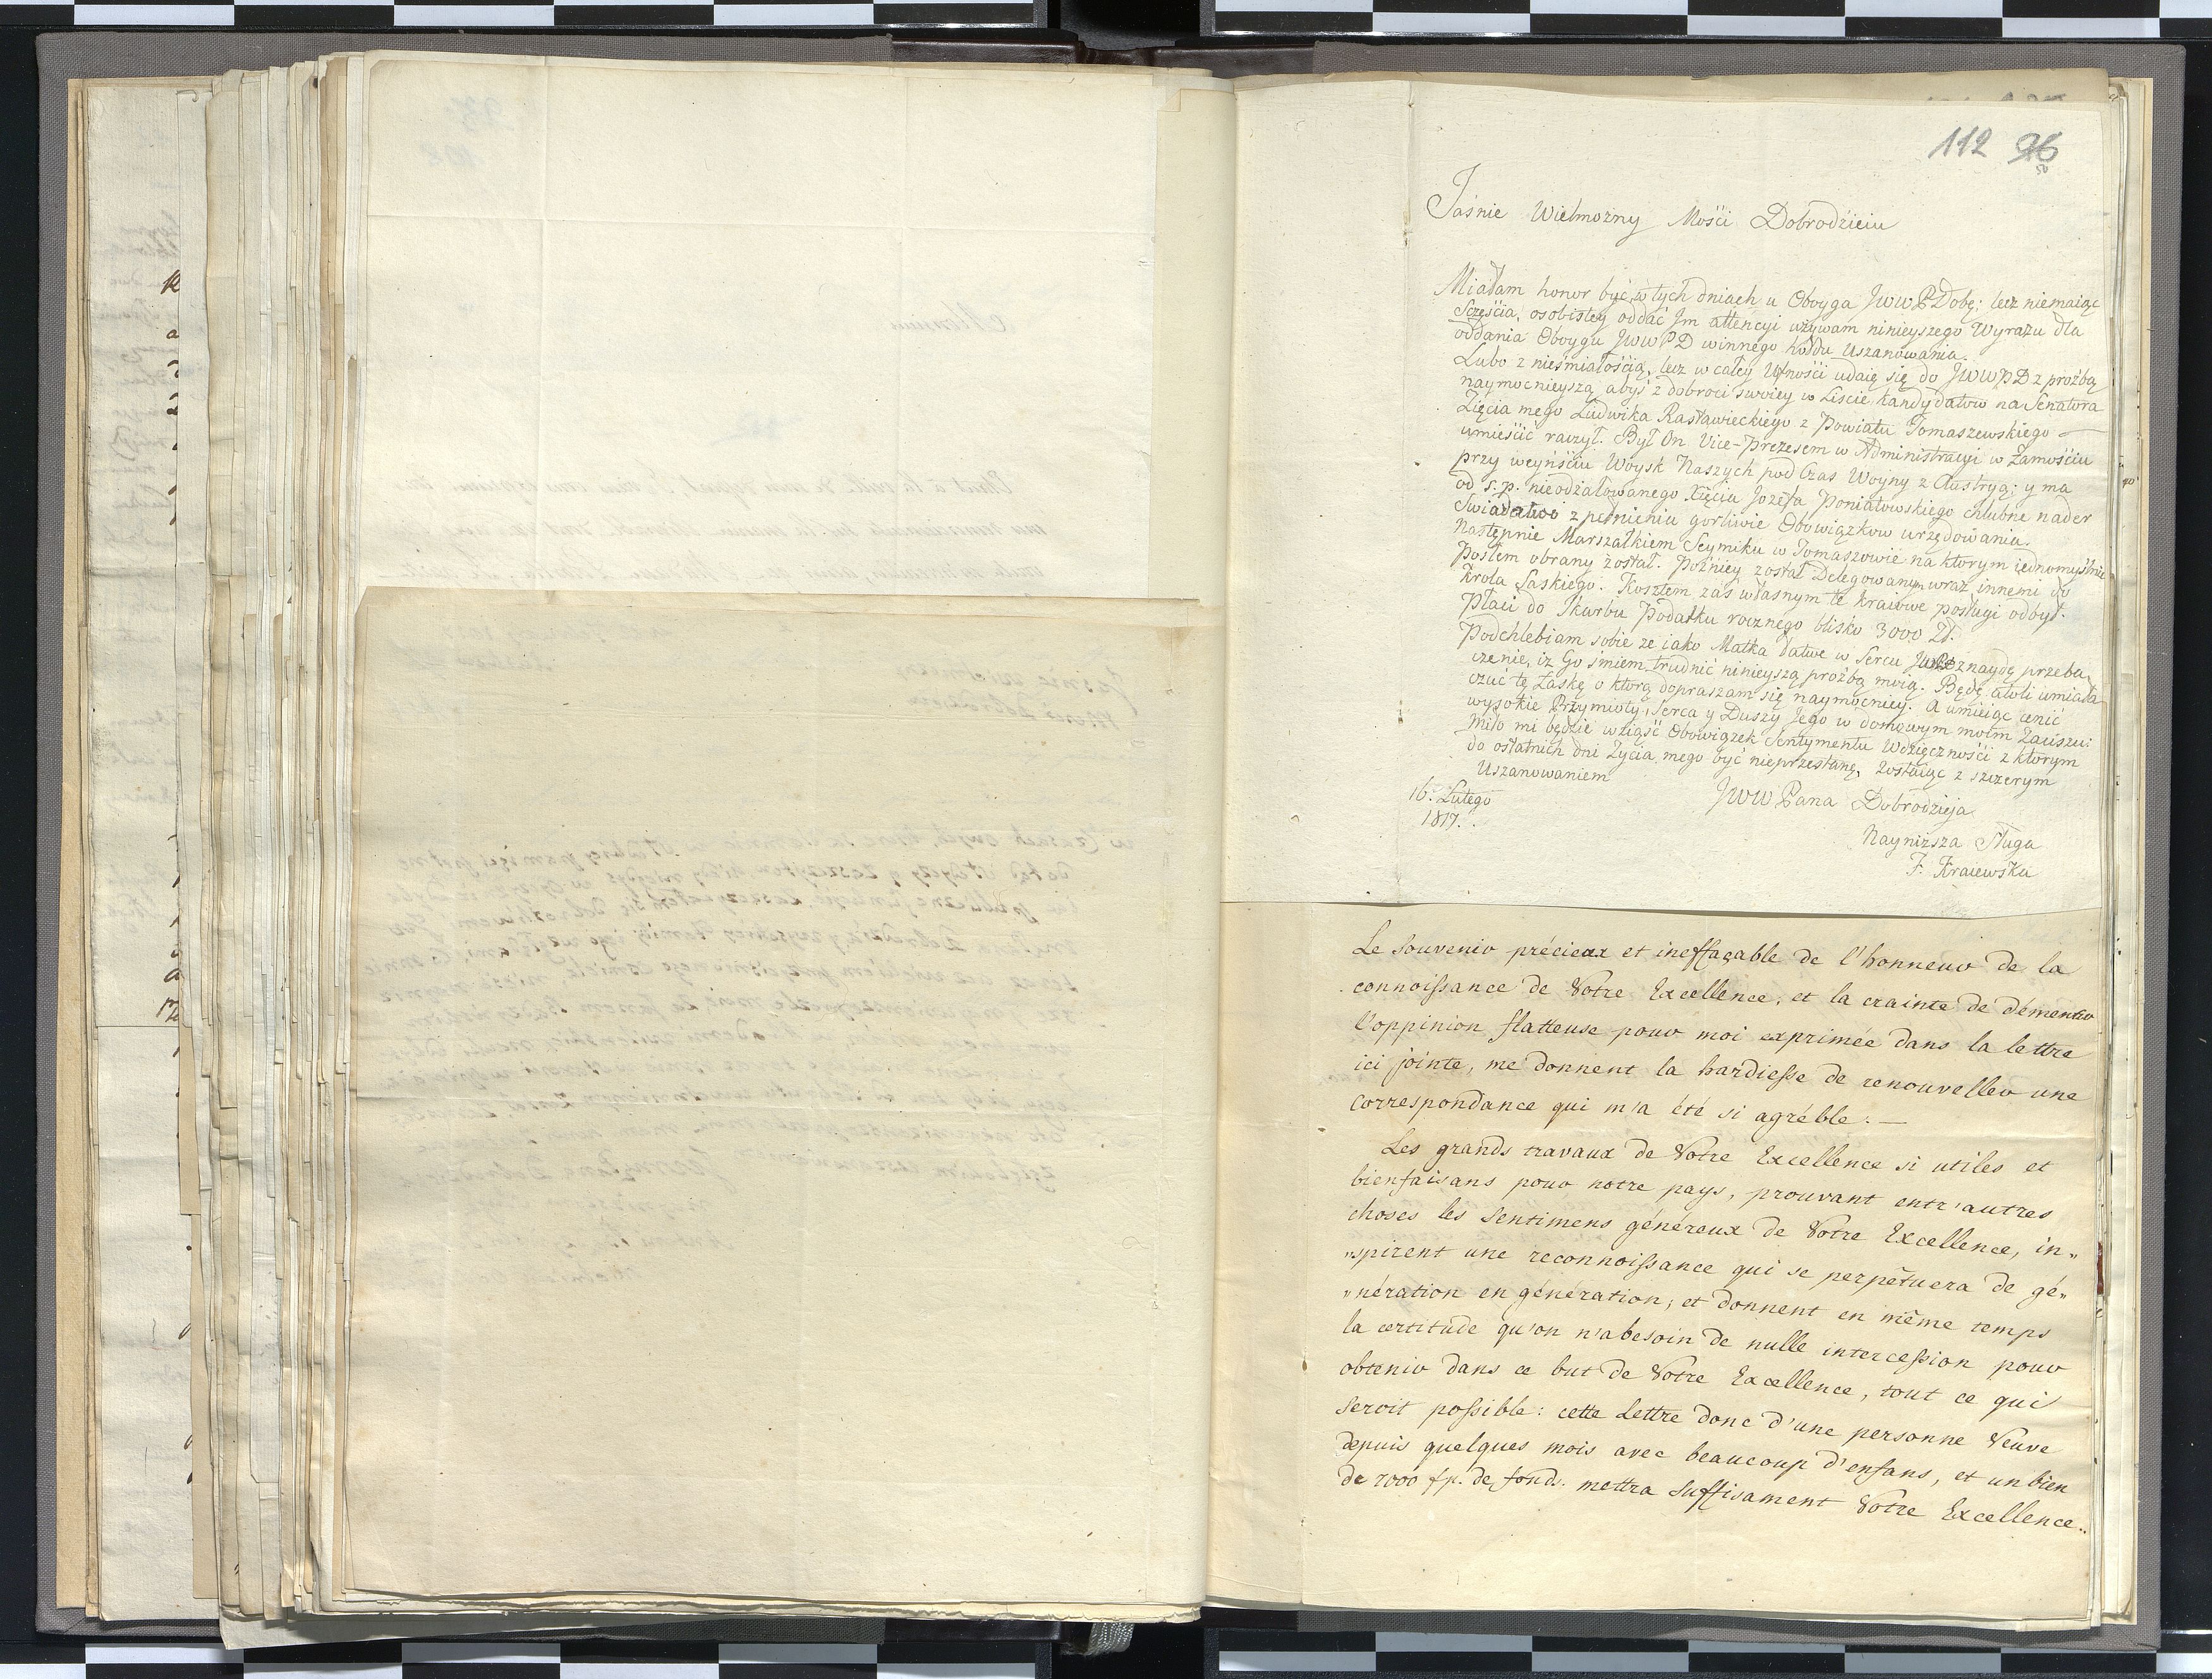 112 96
50
Jaśnie Wielmożny Mości Dobrodzieiu
Miałam honor być w tych dniach u Oboyga JWW PDobę: lecz niemaiąc
Sczęścia, osobistey oddać Jm attencyi używam ninieyszego Wyrazu dla
oddania Oboygu JWWPD winnego hołdu Uszanowania.
Lubo z nieśmiałością, lecz w całey Ufności udaię się do JWWPD z proźbą
naymocnieyszą abyś z dobroci swoiey w Liscie kandydatow na Senatora
Zięcia mego Ludwika Rastawieckiego z Powiatu Tomaszewskiego —
umieścić raczył. Był On Vice-Prezesem w Administracyi w Zamościu
przy weyńściu Woysk Naszych pod Czas Woyny z Austryą; y ma
od ś.p. nieodżałowanego Xięcia Jozefa Poniatowskiego chlubne nader
Swiadatwo z pełnieniu gorliwie Obowiązkow urzędowania.
Następnie Marszałkiem Seymiku w Tomaszowie na ktorym iednomyślnie
Posłem obrany został. Poźniey został Delegowanym wraz innemi do
Krola Saskiego. Kosztem zaś własnym te kraiowe posługi odbył.
Płaci do Skarbu Podatku rocznego blisko 3000 Zł.
Podchlebiam sobie ze iako Matka łatwe w Sercu znaydę przeba,
czenie, iż Go śmiem trudnić ninieyszą proźbą moią. Będę atoli umiała
czuć tę Łaskę o ktorą dopraszam się naymocniey. A umieiąc cenić
wysokie Przymioty, Serca y Duszy Jego w domowym moim Zaciszu:
Miło mi będzie wziąść Obowiązek Sentymentu Wdzięczności z ktorym
do ostatnich dni Życia mego być nieprzestanę, Zostaiąc z szczerym
Uszanowaniem
16. Lutego
1817.
JWW Pana Dobrodzieja
Nayniższa Sługa
F. Kraiewska
Le Souvenir précieux et ineffaçable de l'honneur de la
connoissance de Votre Excellence, et la crainte de démentir
l'oppinion flatteuse pour moi exprimée dans la lettre
ici jointe, me donnent la hardiesse de renouveller une
correspondance qui m'a été si agréble. —
Les grands travaux de Votre Excellence si utiles et
bienfaisans pour notre pays, prouvant entr'autres
choses les Sentimens généreux de Votre Excellence, in„
„spirent une reconnoissance qui se perpétuera de gé„
„nération en génération; et donnent en même temps
la certitude qu'on n'a besoin de nulle intercession pour
obtenir dans ce but de Votre Excellence, tout ce qui
Seroit possible: cette Lettre donc d'une personne Veuve
depuis quelques mois avec beaucoup d'enfans, et un bien
de 7000 fp. de fonds. mettra Suffisament Votre Excellence„